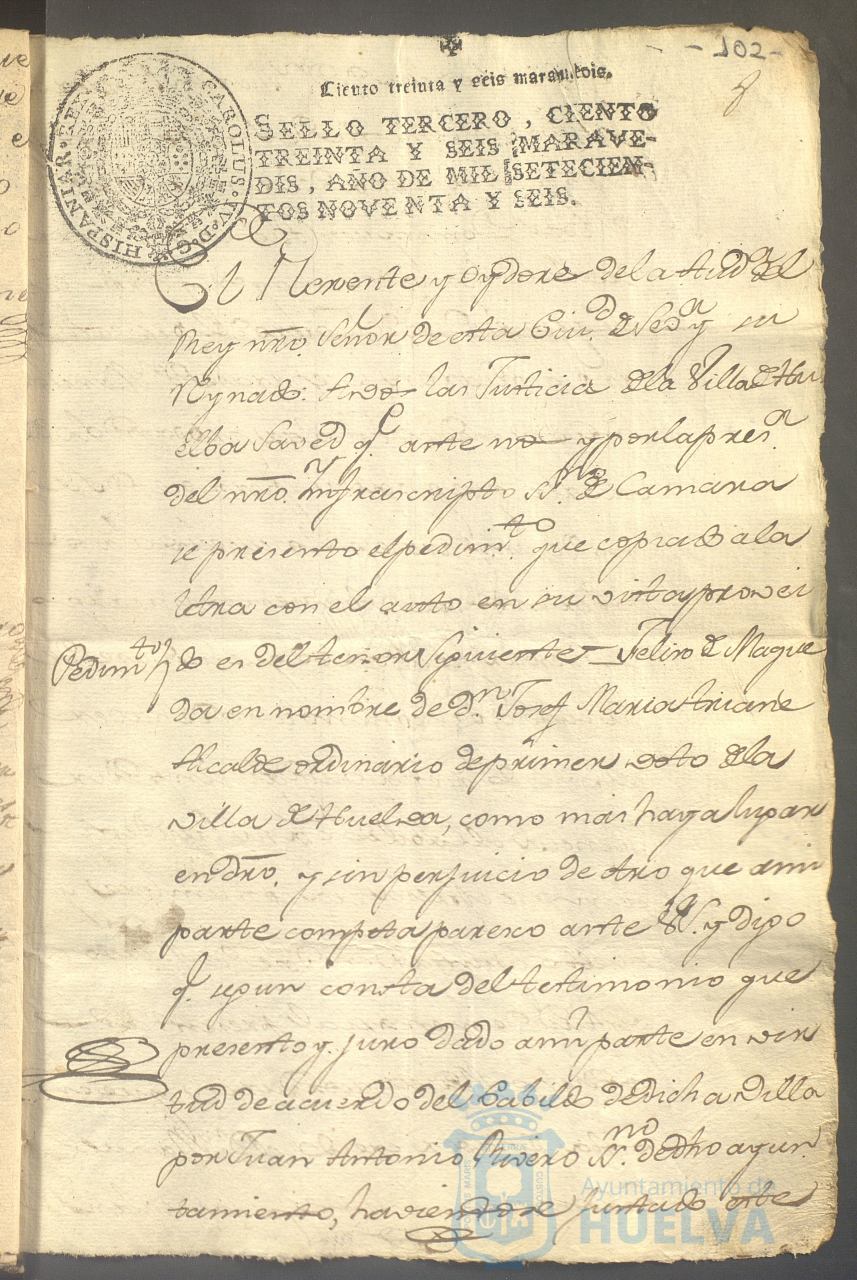 - 102 -
Ciento treinta y seis maravedis.
SELLO TERCERO, CIENTO
TREINTA Y SEIS MARAVE-
DIS, AÑO DE MIL SETECIEN-
TOS NOVENTA Y SEIS.
CAROLUS·IV·D·G· HISPANIAR·REX
El Rexente y Oydores de la Aud.a del
Rey nro. Señor de esta Ciu.d de Sev.a y su
Reynado: A vos las Justicia de la Villa de Hu
elba Saved q.e ante nos y por la pres.a
del nro. Infrascripto SS.no de Camara
se presento el pedim.to que copiado a la
letra con el auto en su vista provei
Pedim.to
do es del tenor Siguiente Felix de Mague
da en nombre de D.n Josef Maria triane
Alcalde ordinario de primer voto de la
villa de Huelva, como mas haya lugar
en dro. y sin perjuicio de otro que a mi
parte competa paresco ante V.S. y Digo
q.e segun consta del testimonio que
presento y juro dado a mi parte en vir
tud de acuerdo del Cabildo de dicha villa
por Juan Antonio Rivero SS.no de dho ayun
tamiento, haviendose juntado este
Ayuntamiento de
HUELVA